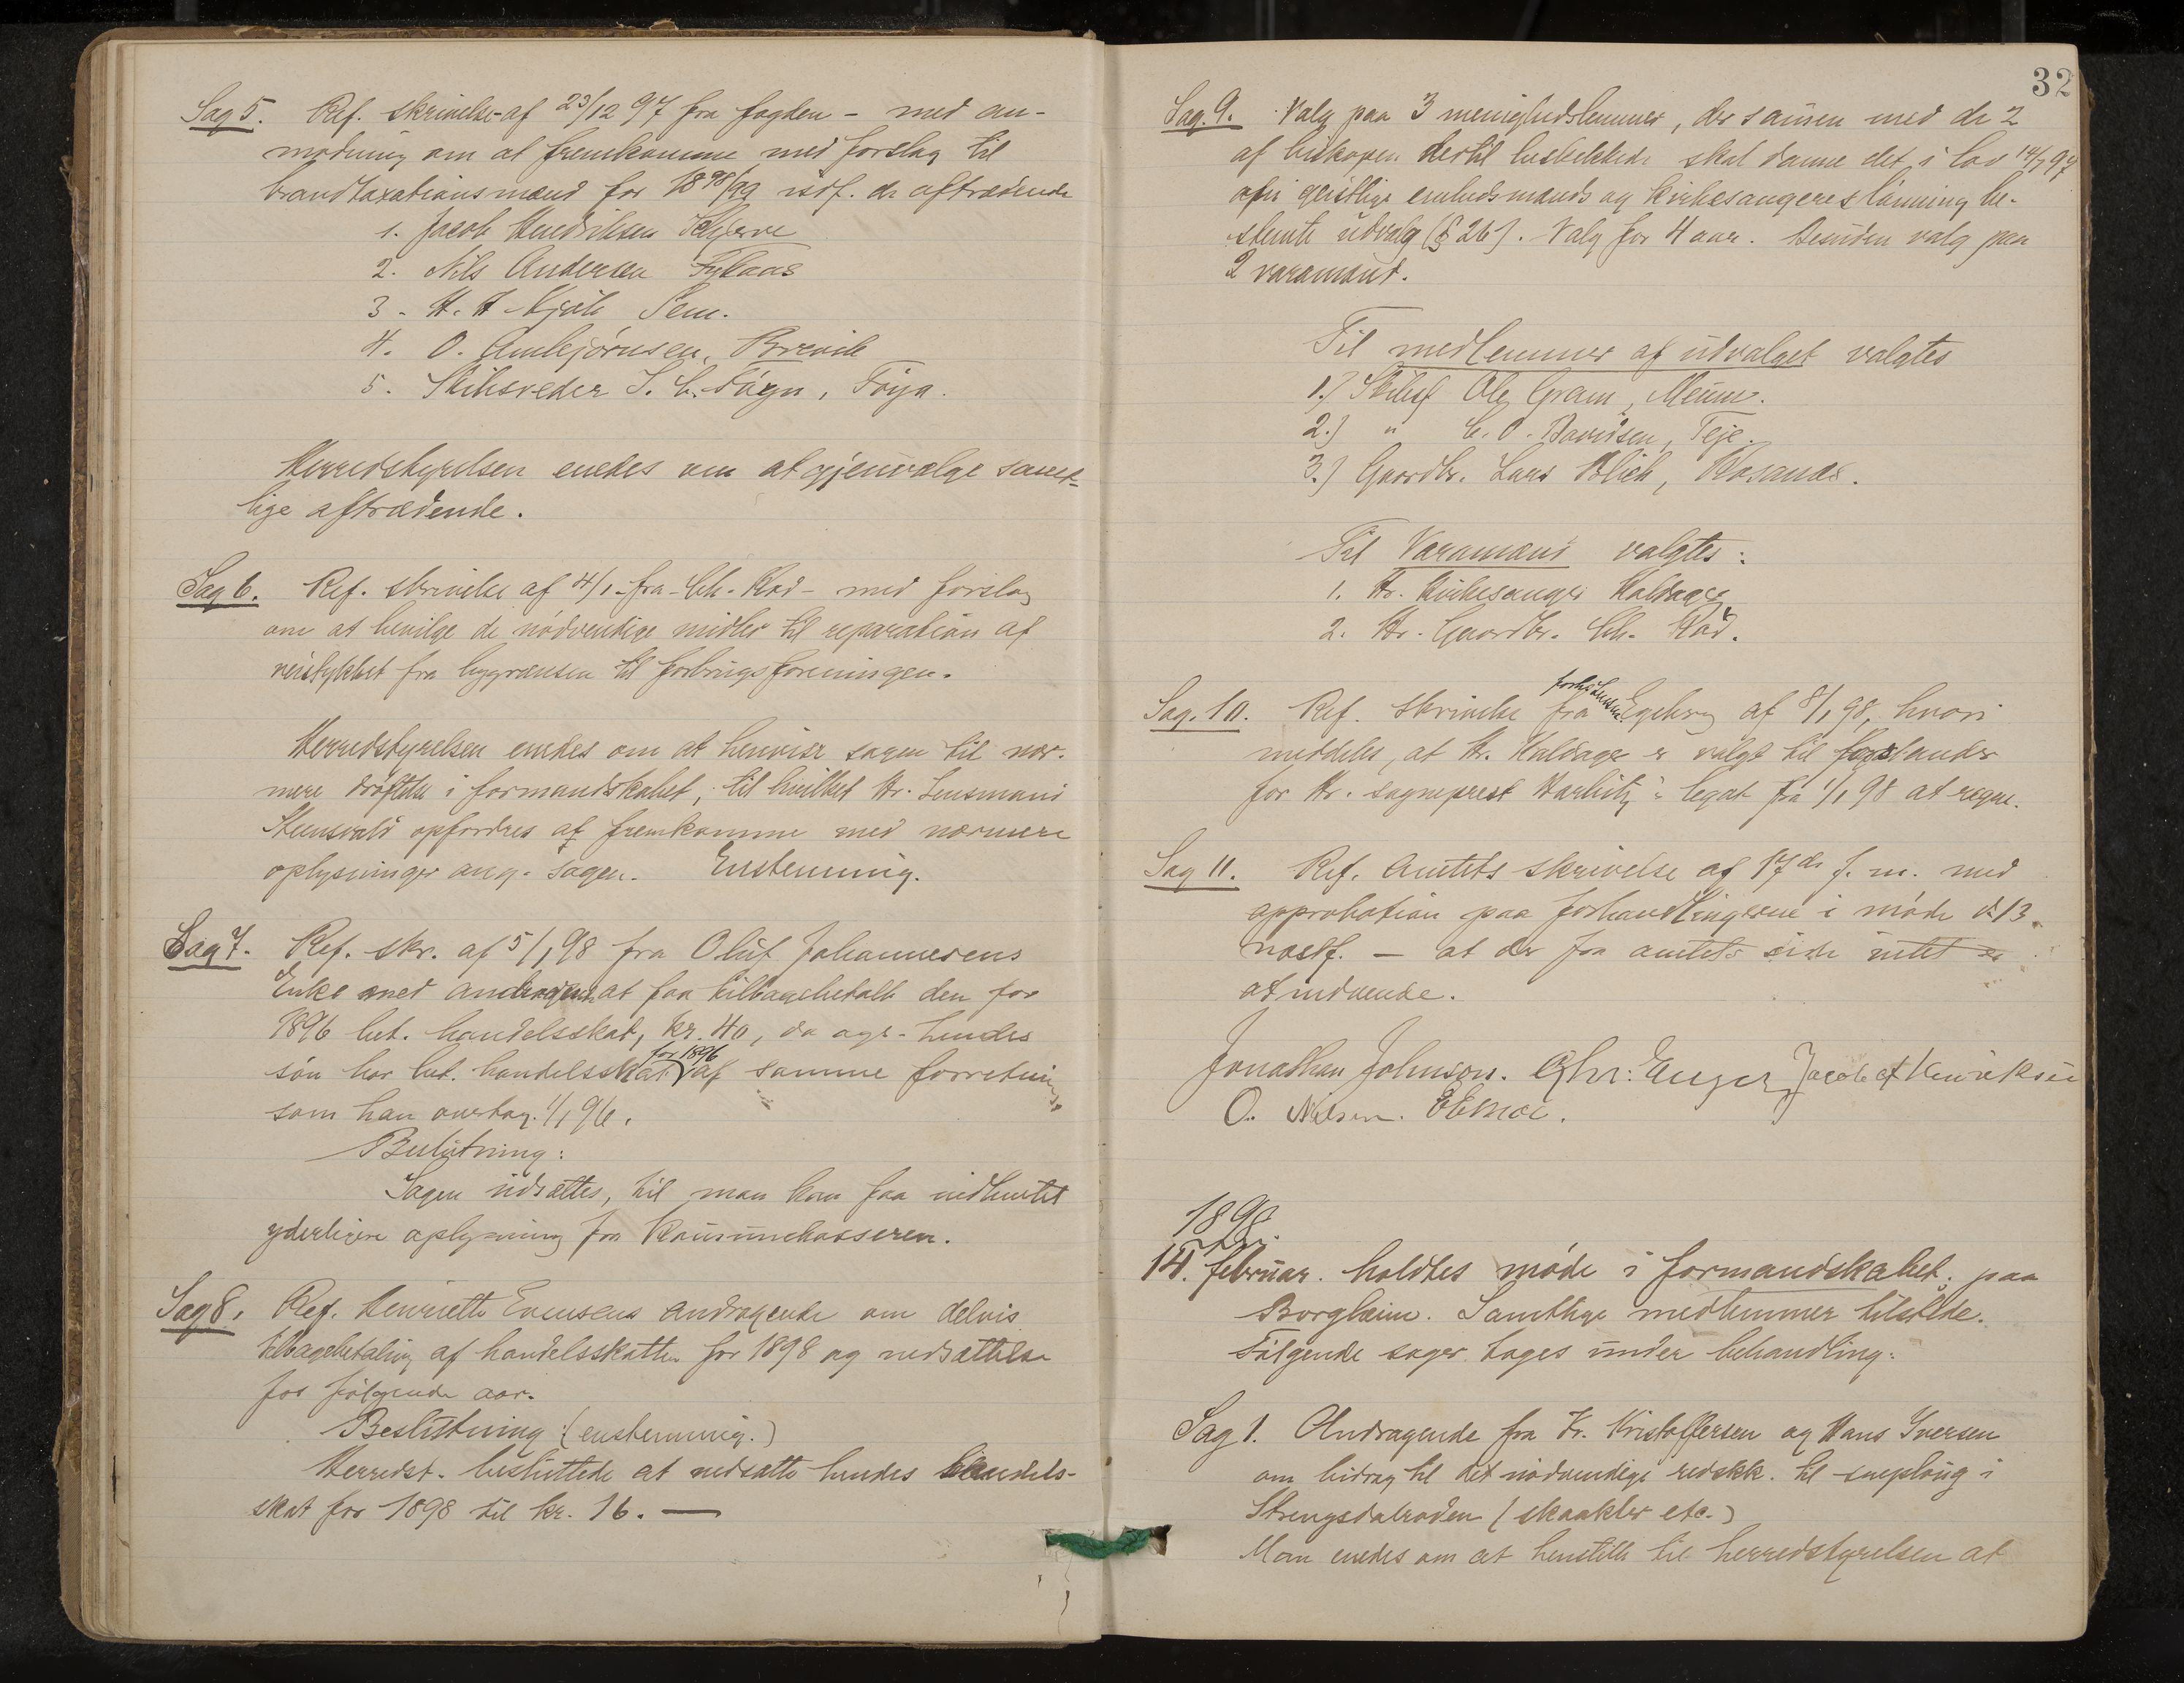 Sag 5. Ref. skrivelse af 23/12 97 fra fogden - med an-
modning om at fremkomme med forslag til
brandtaxationsmænd for 1898/99 istf. de aftrædende
1. Jacob Hendriksen Skjerve
2. Nils Andersen
3. H. A. Sem.
4. O. Ambjørnsen, Brevik
5. Skibsreder S. C. Føyn, Føyn.
Herredstyrelsen enedes om at gjenvælge samt-
lige aftrædende.
Sag 6. Ref. skrivelse af 4/1 - fra - Ch. Rød - med forslag
om at bevilge de nødvendige midler til reparation af
veistykket fra bygrænsen til forbrugsforeningen.
Herredstyrelsen enedes om at henvise sagen til nær-
mere drøftelse i formandskabet, til hvilket Hr. Lensmand
Steensvold opfordres at fremkomme med nærmere
oplysninger ang. sagen. Enstemmig.
Sag 7. Ref. skr. af 5/1 98 fra Oluf Johannesens
Enke med andragende at faa tilbagebetalt den for
1896 bet. handelsskat, kr. 40, da ogs. hendes
søn har bet. handelsskat for 1896 af samme forretning
som han overtog 1/1 96.
Beslutning:
Sagen udsættes, til man kan faa indhentet
yderligere oplysning fra Kommunekasseren.
Sag 8. Ref. Henriette Evensens andragende om delvis
tilbagebetaling af handelsskatten for 1898 og nedsættelse
for følgende aar.
Beslutning (enstemmig.)
Herredst. besluttede at nedsætte hendes handels-
skat for 1898 til kr. 16. —
32
Sag. 9. Valg paa 3 menighedslemmer, der sammen med de 2
af biskopen dertil beskikkede skal danne det i lov 14/7 97
ofri geistlige embedsmænds og kirkesangeres lønning be-
stemte udvalg (§ 26). Valg for 4 aar. Desuden valg paa
2 varamænd.
Til medlemmer af udvalget valgtes
1.) Skibsf Ole Gram, Meum.
2.) " C. O. Davidsen, Teje.
3.) Gaardbr. Lars Blich, Rosanæs.
Til Varamænd valgtes:
1. Hr. Kirkesanger Haldager
2. Hr. Gaardbr. Ch. Rød.
Sag. 10. Ref. skrivelse fra Egeberg af 8/1 98, hvori
meddeles, at Hr. Haldager er valgt til forstander
for Hr. sogneprest legat fra 1/1 98 at regne.
Sag 11. Ref. Amtets skrivelse af 17de f. m. med
approbation paa forhandlingerne i møde d. 13
næstf. — at der fra amtets side intet er
at indvende.
Jonathan Johnson. Chr: Enger Jacob A Henriksen
O. Nilsen. E Emoe.
1898.
14. februar. holdtes møde i formandskabet. paa
Borgheim. Samtlige medlemmer tilstede.
Følgende sager toges under behandling:
Sag 1. Andragende fra Fr. Kristoffersen og Hans Iversen
om bidrag til det nødvendige redskk. til sneploug i
Strengsdalroden (skaakler etc.)
Man enedes om at henstille til herredstyrelsen at